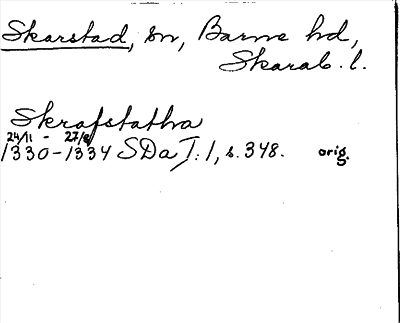 Skarstad, sn, Barne hd,
Skarab. l.
Skrafstatha
24/11 - 27/8
1330-1334 SDa I: 1, s. 348. orig.